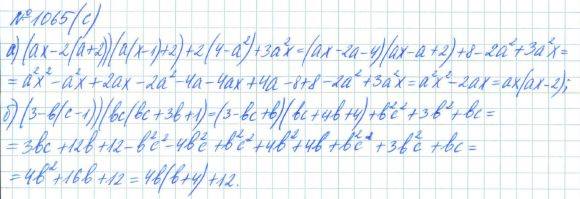 №1065(с)
а) (ax-2(a+2))(a(x-1)+2)+2(4-a²)+3a²x=(ax-2a-4)(ax-a+2)+8-2a²+3a²x=
=a²x²-a²x+2ax-2a²x+2a²-4a-4ax+4a-8+8-2a²+3a²x=a²x²-2ax=ax(ax-2);
б) (3-b(c-1))(bc(bc+3b+1)=(3-bc+b)(bc+4b+4)+b²c²+3b²+bc=
=3bc+12b+12-b²c²-4b²c+b²c²+4b²+4b+b²c²+3b²c+bc=
=4b²+16b+12=4b(b+4)+12.